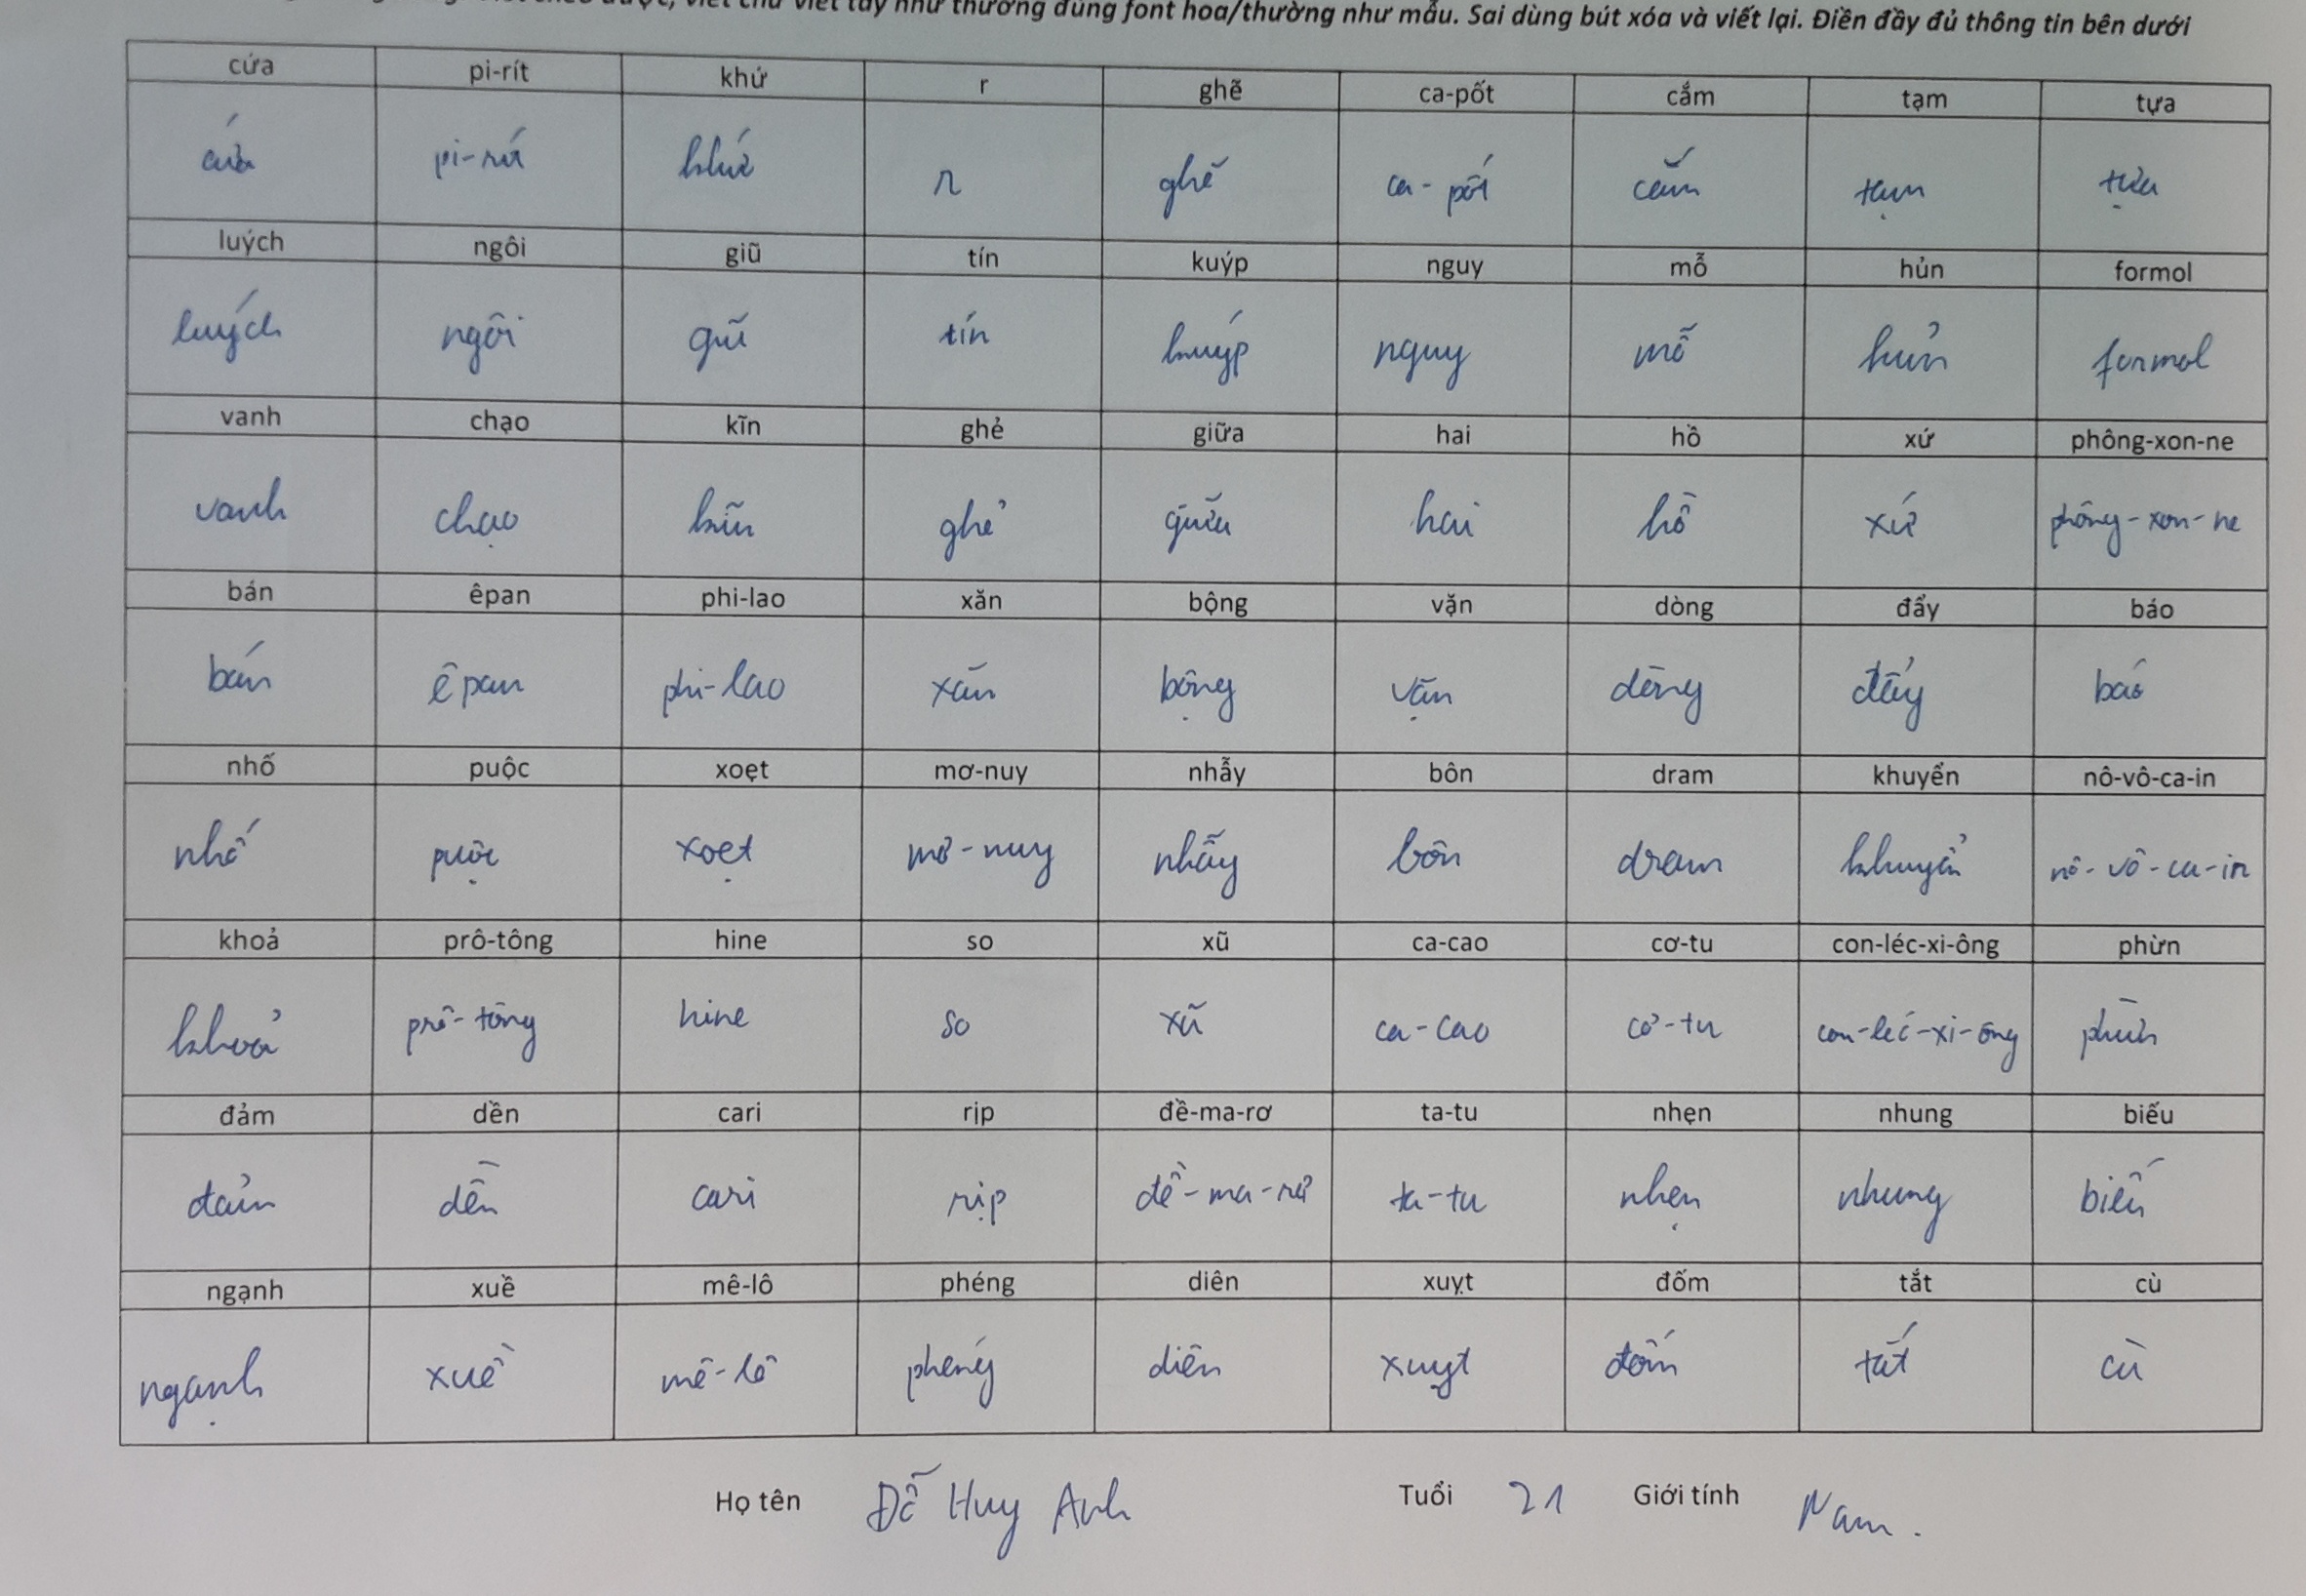 viết chữ viết tay như thường đúng font hoa/thường như mẫu. Sai dùng bút xóa và viết lại. Điền đầy đủ thông tin bên dưới
cứa pi-rít khứ r ghẽ ca-pốt cắm tạm tựa
cứa pi-rít khứ r ghẽ ca-pốt cắm tạm tựa
luých ngôi giũ tín kuýp nguy mỗ hủn formol
luých ngôi giũ tín kuýp nguy mỗ hủn formol
vanh chạo kĩn ghẻ giữa hai hồ xứ phông-xon-ne
vanh chạo kĩn ghẻ giữa hai hồ xứ phông-xon-ne
bán êpan phi-lao xăn bộng vặn dòng đẩy báo
bán êpan phi-lao xăn bộng vặn dòng đẩy báo
nhố puộc xoẹt mơ-nuy nhẫy bôn dram khuyển nô-vô-ca-in
nhố puộc xoẹt mơ-nuy nhẫy bôn dram khuyển nô-vô-ca-in
khoả prô-tông hine so xũ ca-cao cơ-tu con-léc-xi-ông phừn
khoả prô-tông hine so xũ ca-cao cơ-tu con-léc-xi-ông phừn
đảm dền cari rịp đề-ma-rơ ta-tu nhẹn nhung biếu
đảm dền cari rịp đề-ma-rơ ta-tu nhẹn nhung biếu
ngạnh xuề mê-lô phéng diên xuỵt đốm tắt cù
ngạnh xuề mê-lô phéng diên xuỵt đốm tắt cù
Họ tên Đỗ Huy Anh Tuổi 21 Giới tính Nam.